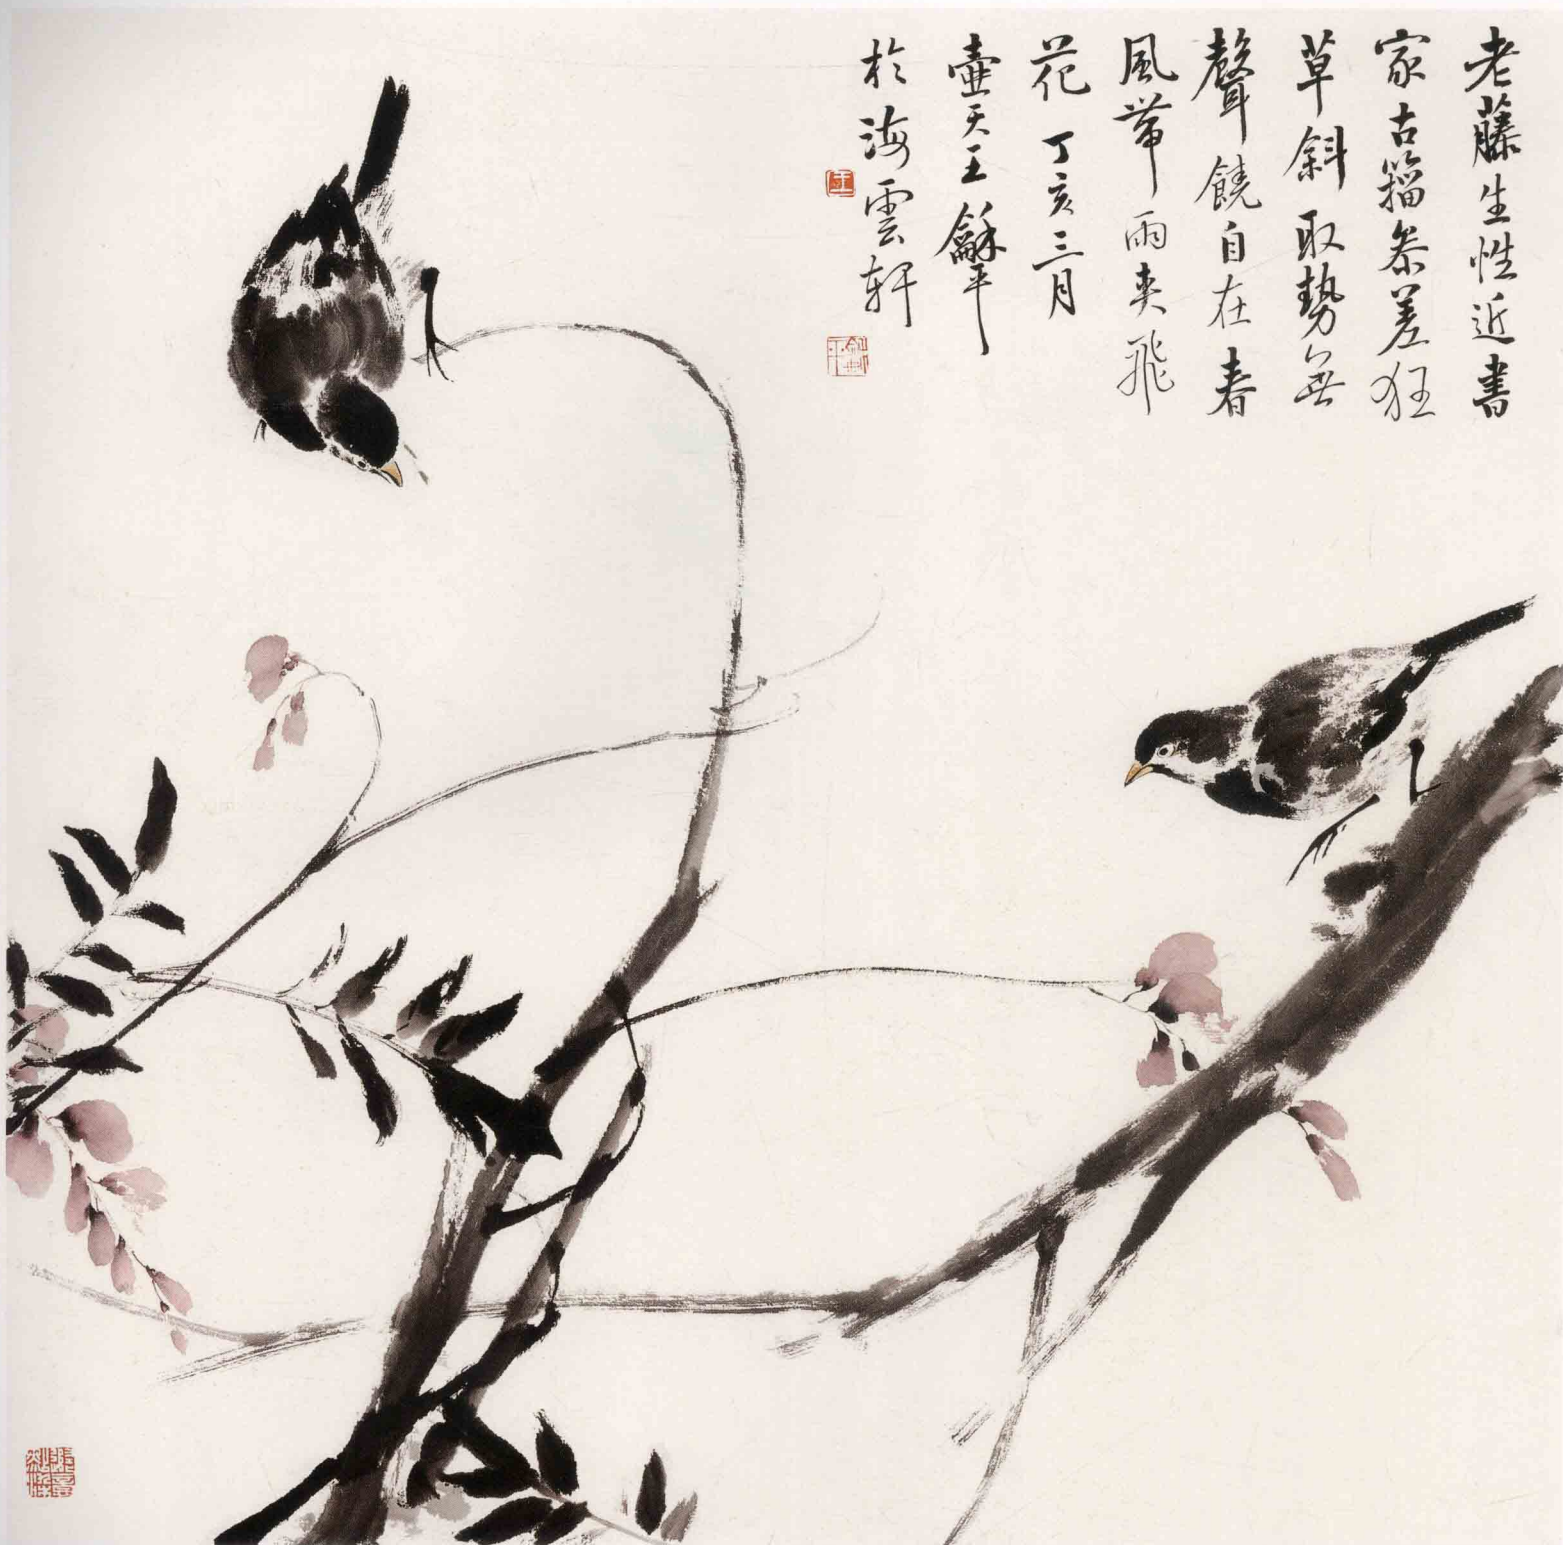 老藤生性近書
家古籀参差狂
草斜取勢無
聲饒自在春
風帶雨夾飛
花 丁亥三月
壺天王龢平
於海雲軒
王
龢平